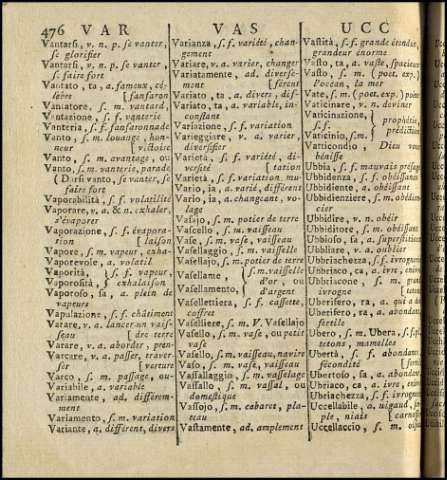 476 VAR VAS UCC
Vantarsi, v. n. p. se vanter,
se glorifier
Vantarsi, v. n. p. se vanter,
s. faire fort
Vantato, ta, a. fameux, cé-
lèbre [fanfaron
Vantatore, s. m. vantard,
Vantazione, s. f. vanterie
Vanteria, s. f. fanfaronnade
Vanto, s. m. louange, hon-
neur victoire
Vanto, s. m. avantage, ou
Vanto, s. m. vanterie, parade
(Darsi vanto, se vanter, se
faire fort
Vaporabilità, s. f. volatilité
Vaporare, v. a. & n. exhaler,
s'évaporer
Vaporazione, s. f. évapora-
rion [laison
Vapore, s. m. vapeur, exha-
Vaporevole, a. volatil
Vaporità, s. f. vapeur,
Vaporosità, exhalaison
Vaporoso, sa, a. plein de
vapeurs
Vapulazione, s. f. châtiment
Varare, v. a. lancer un vais-
seau [dre terre
Varare, v. a. aborder, pren-
Varcare, v. a. passer, traver-
ser [verture
Varco, s. m. passage, ou-
Variabile, a. variable
Variamente, ad. différem-
ment
Variamento, s. m. variation
Variante, a. différent, divers
Varianza, s. f. variété, chan-
gement
Variare, v. a. varier, changer
Variatamente, ad. diverse-
ment [férent
Variato, ta, a. divers, dif-
Variato, ta, a. variable, in-
constant
Variazione, s. f. variation
Varieggiare, v. a. varier,
diversifier
Varietà, s. f. variété, di-
versité [tation
Varietà, s. f. variation mu-
Vario, ia, a. varié, différent
Vario, ia, a. changeant, vo-
lage
Vasajo, s. m. potier de terre
Vascello, s. m. vaisseau
Vase, s. m. vase, vaisseau
Vasellaggio, s. m. vaisselle
Vasellajo, s. m. potier de terre
Vasellame, s. m. vaisselle
d'or, ou
Vasellamento, d'argent
Vasellettiera, s. f. cassette,
coffret
Vaselliere, s. m. V. Vasellajo
Vasello, s. m. vase, ou petit
vase
Vasello, s. m. vaisseau, navire
Vaso, s. m. vase, vaisseau
Vassallaggio, s. m. vasselage
Vassallo, s. m. vassal, ou
domestique
Vassojo, s. m. cabaret, pla-
teau
Vastamente, ad. amplement
Vastità, s. f. grande étendue,
grandeur énorme
Vasto, ta, a. vaste, spacieux
Vasto, s. m. (poet. exp.)
l'océan, la mer
Vate, s. m. (poet. exp.)
Vaticinare, v. n. deviner
Vaticinazione,
s. f. prophétie,
Vaticinio, s. m. prédiction
Vatticondio, Dieu vous
bénisse
Ubbia, s. f. mauvais présage
Ubbidenza, s. f. obéissance
Ubbidiente, a. obéissant
Ubbidiente, s. m.
cier
Ubbidire, v. n. obéir
Ubbiditore, s. m. obéissant
Ubbioso, sa, a. superstitieux
Ubbliare, v. a. oublier
Ubbriachezza, s. f. ivrognerie
Ubbriaco, ca, a. ivre,
Ubbriacone, s. m. grand
ivrogne
Uberifero, ra, a. qui a
Uberifero, ra, a. abondant
fertile
Ubero, s. m. Ubera, s. f.
tetons, mamelles
Ubertà, s. f. abondance,
fécondité
Ubertoso, sa, a. abondant
Ubriaco, ca, a. ivre,
Ubriachezza, s. f. ivrognerie
Uccellabile, a. nigaud,
ple, niais
Uccellaccio, s. m.